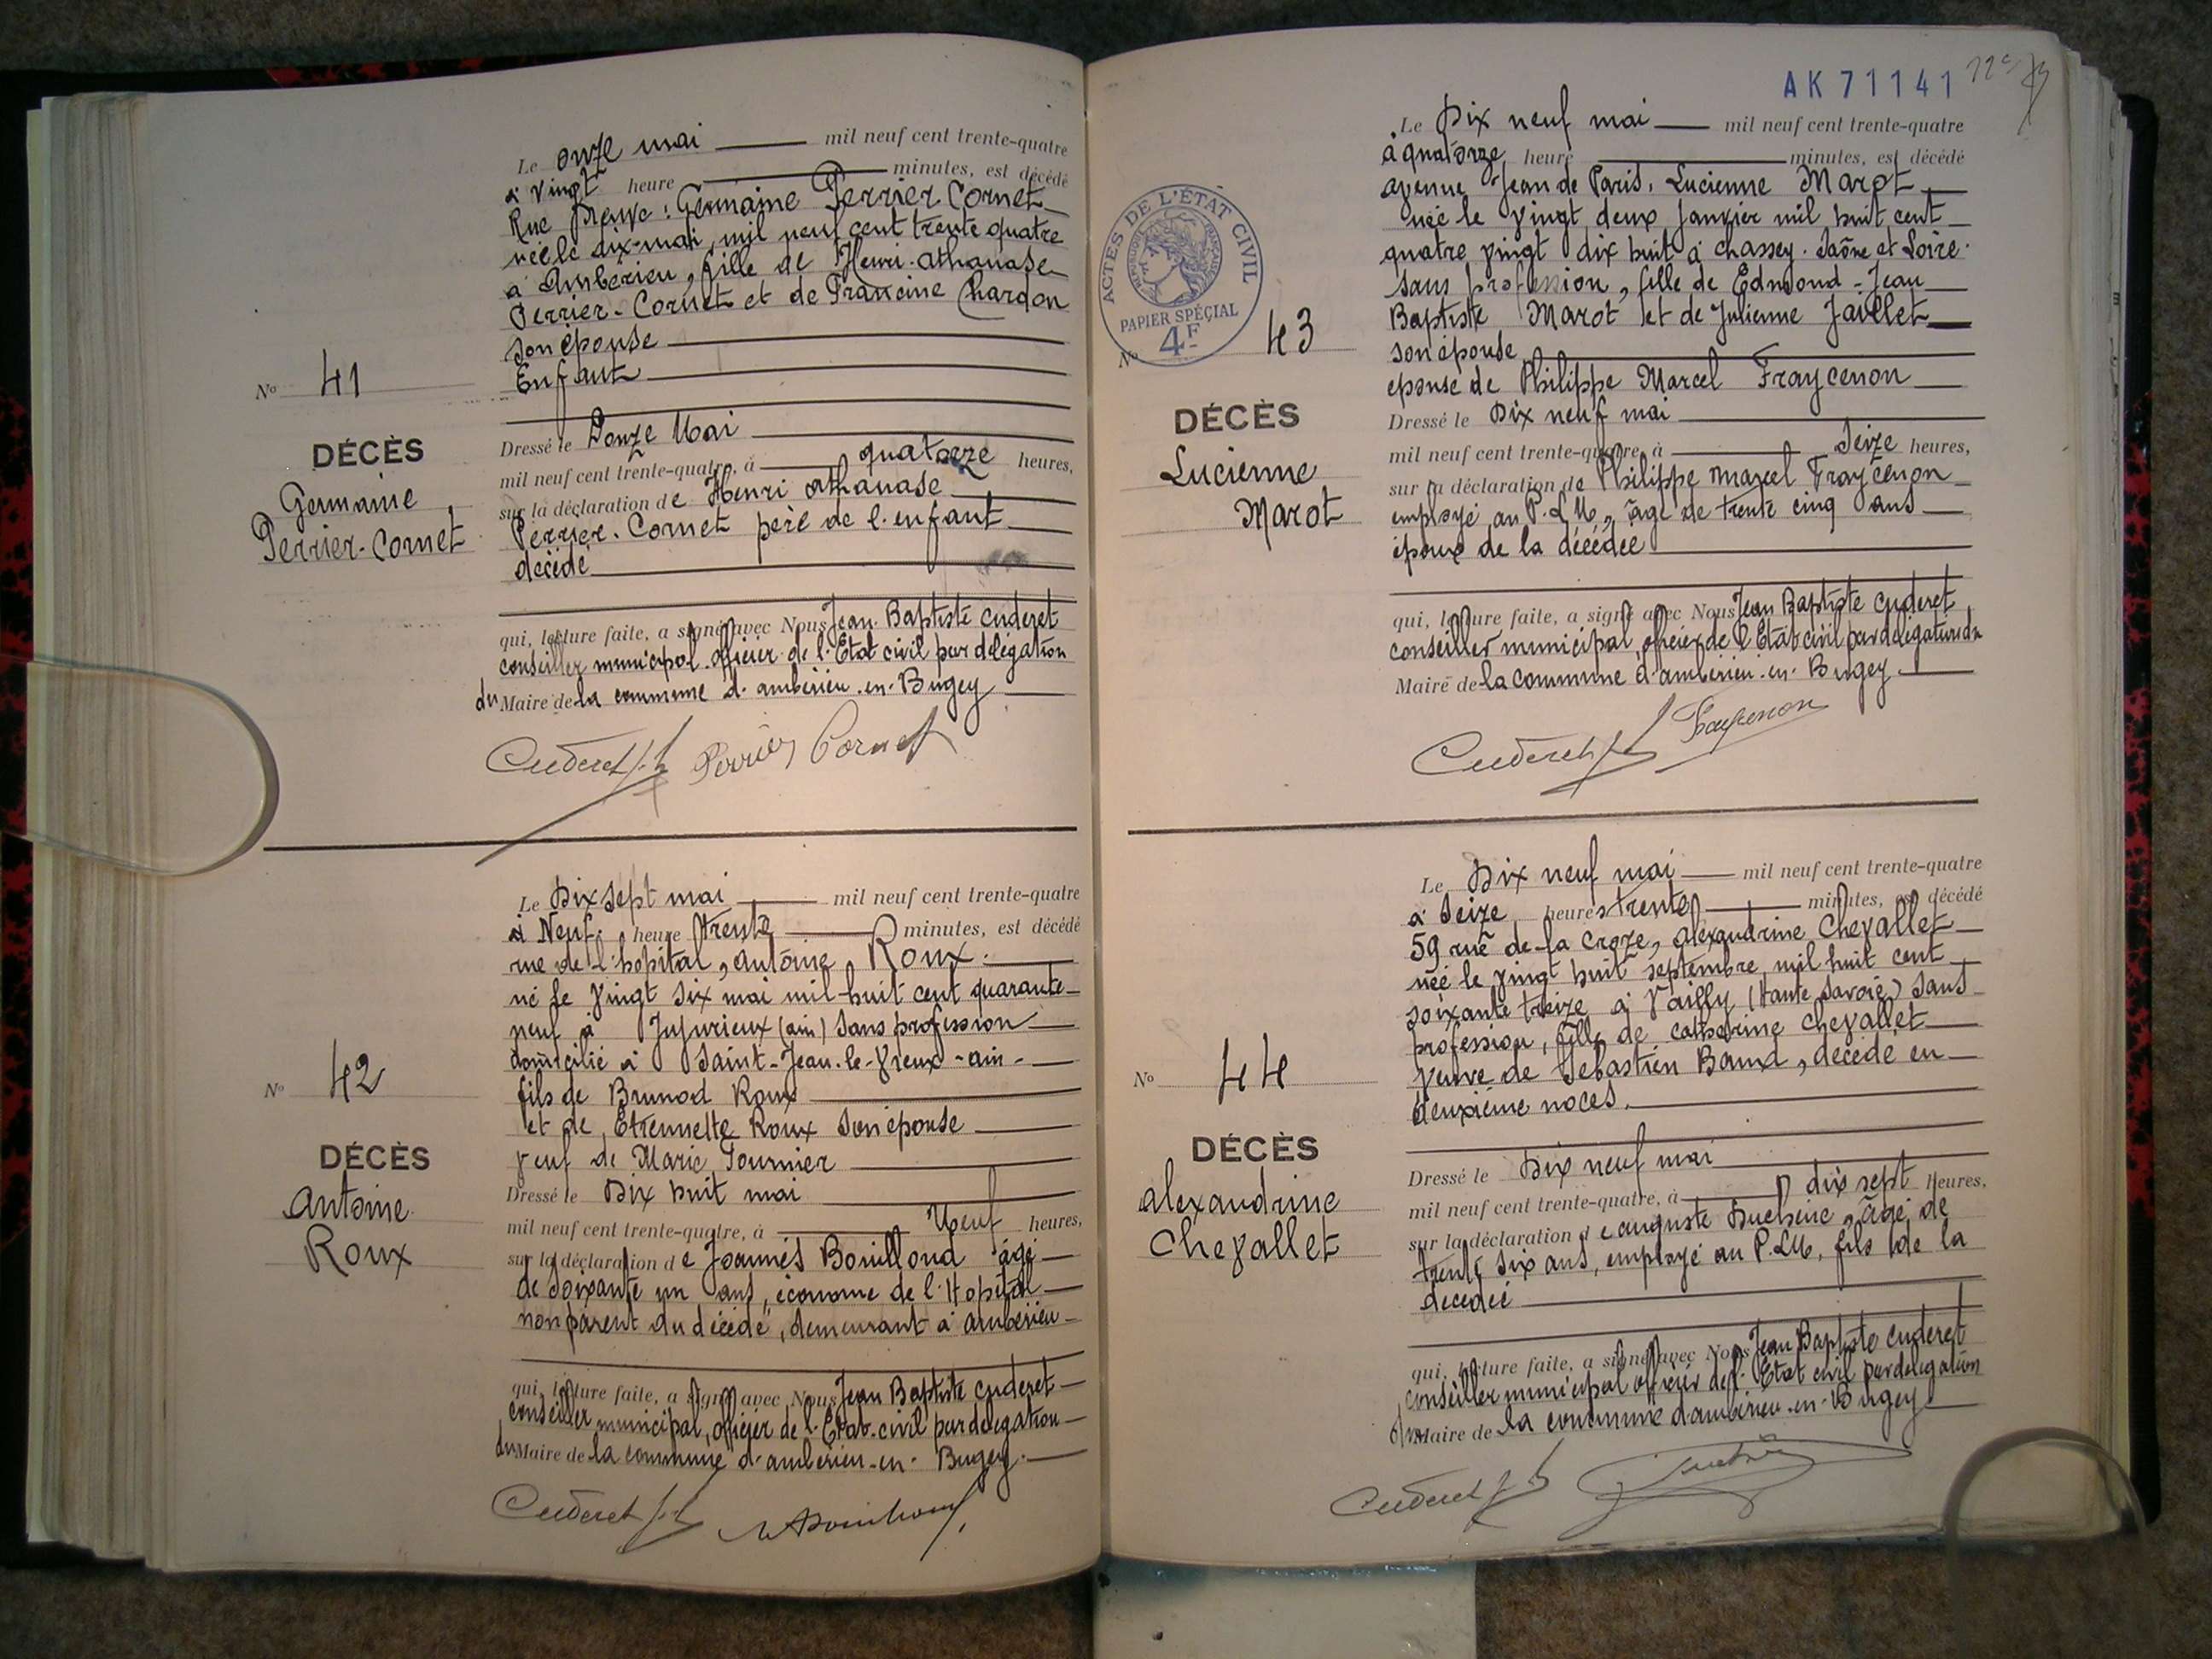 Le onze mai mil neuf cent trente-quatre
à vingt heure minutes, est décédé
Rue : Germaine Perrier Cornet
née le dix-mai, mil neuf cent trente quatre
à Ambérieu, fille de Henri-athanase
Perrier-Cornet et de Francine Chardon
son épouse
Enfant
No 41
DÉCÈS
Germaine
Perrier-Cornet
Dressé le Douze Mai
mil neuf cent trente-quatre, à quatorze heures,
sur la déclaration de Henri athanase
Perrier-Cornet père de l'enfant
décédé
qui, lecture faite, a signé avec Nous Jean-Baptiste Cuderet
conseiller municipal officier de l'Etat civil par délégation
du Maire de la commune d'ambérieu-en-Bugey
Cuderet J.B Perrier Cornet
Le Dix sept mai mil neuf cent trente-quatre
à Neuf heure trente minutes, est décédé
rue de l'hopital, antoine Roux.
né le vingt six mai mil-huit cent quarante
neuf à Jujurieux (ain) sans profession
domicilié à Saint-Jean-le-Vieux-ain-
fils de Brunod Roux
et de Etiennette Roux son épouse
veuf de Marie Tournier
No 42
DÉCÈS
antoine
Roux
Dressé le Dix huit mai
mil neuf cent trente-quatre, à Neuf heures,
sur la déclaration de Joannés Bouilloud âgé
de soixante un ans, économe de l'Hopital
non parent du décédé, demeurant à ambérieu-
qui, lecture faite, a signé avec Nous Jean Baptiste Cuderet
conseiller municipal, officier de l'Etat-civil par délégation
du Maire de la commune d'ambérieu-en-Bugey.
Cuderet J.B
AK71141
Le Dix neuf mai mil neuf cent trente-quatre
à quatorze heure minutes, est décédé
avenue Jean de Paris, Lucienne Marot
née le vingt deux janvier mil huit cent
quatre vingt dix huit à chassey. Saône et Loire.
sans profession, fille de Edmond-Jean
Baptiste Marot et de Julienne Javellet
son épouse
epouse de Philippe Marcel Fraycenon
ACTES DE L'ÉTAT CIVIL
RÉPUBLIQUE FRANÇAISE
PAPIER SPÉCIAL
4F
No 43
DÉCÈS
Lucienne
Marot
Dressé le Dix neuf mai
mil neuf cent trente-quatre à Seize heures,
sur la déclaration de Philippe Marcel Fraycenon
employé au P.L.M., âgé de trente cinq ans
époux de la décédée
qui, lecture faite, a signé avec Nous Jean Baptiste Cuderet
conseiller municipal, officier de l'Etat civil par délégation du
Maire de la commune d'ambérieu-en-Bugey
Cuderet J.B Fraycenon
Le Dix neuf mai mil neuf cent trente-quatre
à Seize heures trente minutes, est décédé
59 rue de la Croze, alexandrine Chevallet
née le vingt huit septembre mil huit cent
soixante treize à Vailly (Haute Savoie) sans
profession, fille de catherine Chevallet
veuve de Sebastien Baud, décédé en
deuxième noces.
No 44
DÉCÈS
alexandrine
Chevallet
Dressé le Dix neuf mai
mil neuf cent trente-quatre, à dix sept heures,
sur la déclaration de auguste Duchêne, âgé de
trente six ans, employé au P.L.M. fils de la
décédée
qui, lecture faite, a signé avec Nous Jean Baptiste Cuderet
conseiller municipal officier de l'Etat civil par délégation
du Maire de la commune d'ambérieu-en-Bugey
Cuderet J.B